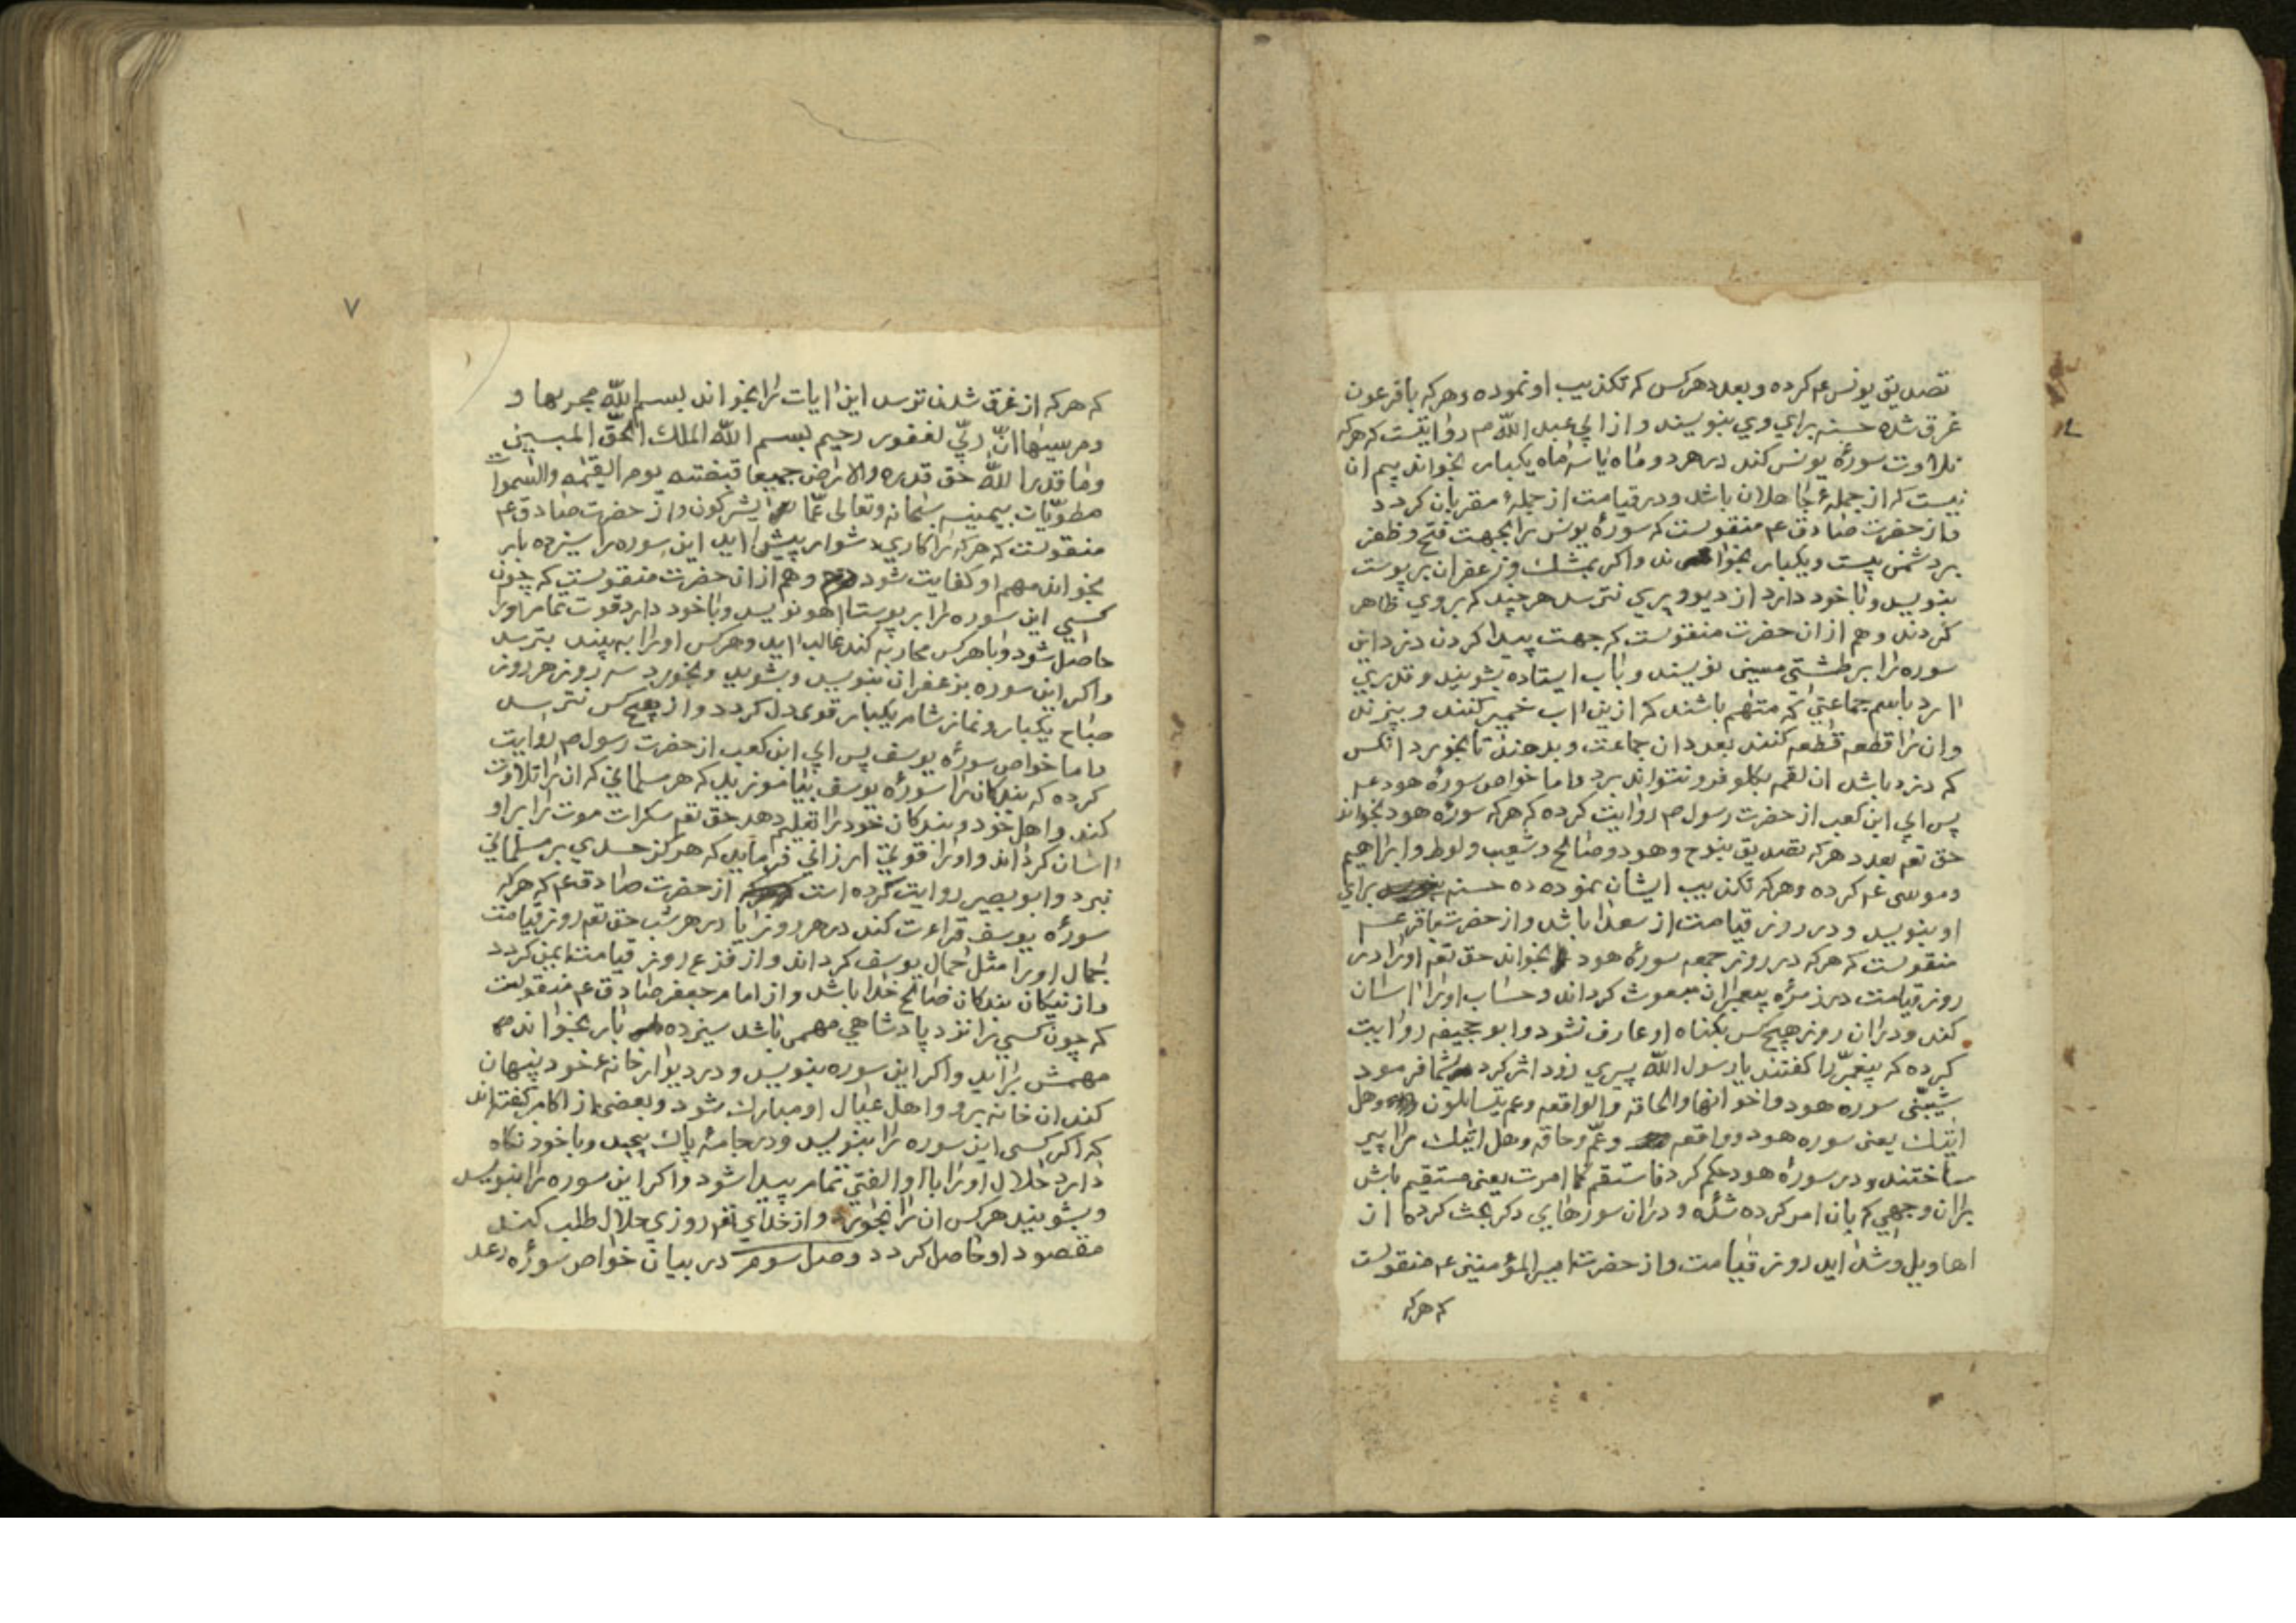 تصدیق یونس عم کرده و بعدد هرکس که تکذیب او نموده و هرکه با فرعون
غرق شده حسنه برای وی بنویسند و از ابی عبد اللّه م روایتست که هرکه
تلاوت سورهٔ یونس کند در هر دو ماه یا سه ماه یکبار بخواند بیم ان
نیست که از جملهٔ جاهلان باشد و در قیامت از جملهٔ مقربان کردد
و از حضرت صادق عم منقولست که سورهٔ یونس را بجهت فتح و ظفر
بر دشمن بیست و یکبار بخوانند و اکر بمشک و زعفران بر پوست
بنویسد و با خود دارد از دیو و پری نترسد هرچند که بر وی ظاهر
کردند و هم از ان حضرت منقولست که جهت پیدا کردن دزد این
سوره را بر طشتی مسین نویسند و باب ایستاده بشویند و قدری
ارد باسم جماعتی که متهم باشند که ازین اب خمیر کنند و بپزند
و ان را قطعه قطعه کنند بعدد ان جماعت و بدهند تا بخورد انکس
که دزد باشد ان لقمه بکلو فرو نتواند برد و اما خواص سورهٔ هود عم
پس ابی ابن کعب از حضرت رسول م روایت کرده که هرکه سورهٔ هود بخواند
حق تعم بعدد هرکه تصدیق بنوح و هود و صالح و شعیب و لوط و ابراهیم
و موسی عم کرده و هرکه تکذیب ایشان نموده ده حسنه برای
او بنویسد و در روز قیامت از سعدا باشد و از حضرت باقر عم
منقولست که هرکه در روز جمعه سورهٔ هود بخواند حق تعم او را در
روز قیامت در زمرهٔ پیغمبران مبعوث کرداند و حساب او را اسان
کند و در ان روز هیچکس بکناه او عارف نشود و ابو جحیفه روایت
کرده که پیغمبر را کفتند یا رسول اللّه پیری زود اثر کرد بشما فرمود
شیبتنی سوره هود و اخواتها والحاقه والواقعه وعم یتسایلون وهل
اتیک یعنی سوره هود و واقعه و عمّ و حاقه و هل اتیک مرا پیر
ساختند و در سورهٔ هود حکم کرد فاستقم کما امرت یعنی مستقیم باش
بران وجهی که بان امر کرده شدهٔ و در ان سورهای دکر بحث کرده از
اهاویل و شداید روز قیامت و از حضرت امیر المؤمنین عم منقولست
که هرکه
۷
که هرکه از غرق شدن ترسد این ایات را بخواند بسم اللّه مجریها و
ومرسیها انّ ربّی لغفور رحیم بسم اللّه الملک الحقّ المبین
وما قدروا اللّه حق قدره والارض جمیعا قبضته یوم القیمه والسموات
مطویّات بیمینه سبحانه وتعالی عمّا یشرکون و از حضرت صادق عم
منقولست که هرکه را کاری دشوار پیش اید این سوره را سیزده بار
بخواند مهم او کفایت شود و هم از ان حضرت منقولست که چون
کسی این سوره را بر پوست اهو نویسد و با خود دارد قوت تمام او را
حاصل شود و با هرکس محاربه کند غالب اید و هرکس او را به بیند بترسد
و اکر این سوره بزعفران بنویسد و بشوید و بخورد سه روز هر روز
صباح یکبار و نماز شام یکبار قوی دل کردد و از هیچکس نترسد
و اما خواص سورهٔ یوسف پس ابی ابن کعب از حضرت رسول م روایت
کرده که بندکان را سورهٔ یوسف بیاموزید که هر مسلمانی که ان را تلاوت
کند و اهل خود و بندکان خود را تعلیم دهد حق تعم سکرات موت را بر او
اسان کرداند و او را قوتی ارزانی فرماید که هرکز حسدی بر مسلمانی
نبرد و ابو بصیر روایت کرده است از حضرت صادق عم که هرکه
سورهٔ یوسف قراءت کند در هر روز یا در هر شب حق تعم روز قیامت
جمال او را مثل جمال یوسف کرداند و از فزع روز قیامت ایمن کردد
و از نیکان بندکان صالح خدا باشد و از امام جعفر صادق عم منقولست
که چون کسی را نزد پادشاهی مهمی باشد سیزده بار بخواند
مهمش براید و اکر این سوره بنویسد و در دیوار خانهٔ خود پنهان
کند ان خانه برو و اهل عیال او مبارک شود و بعضی از اکابر کفته‌اند
که اکر کسی این سوره را بنویسد و در جامهٔ پاک پیچد و با خود نکاه
دارد حلال او را با او الفتی تمام پیدا شود و اکر این سوره را بنویسد
و بشویند هرکس ان را بخورد و از خدای تعم روزی حلال طلب کند
مقصود او حاصل کردد وصل سوم در بیان خواص سورهٔ رعد